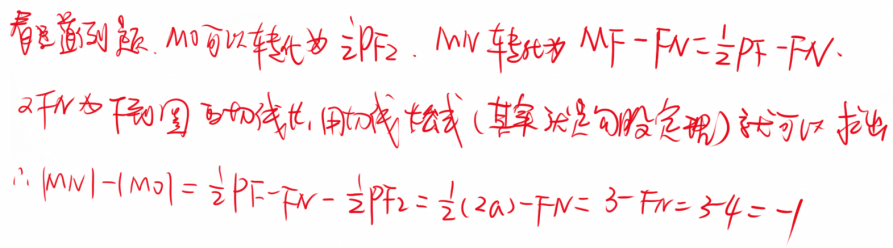 看这道到题. MO可以转化为 ½PF₂. MN 转化为 MF-FN=½PF-FN.
又FN为F到圆的切线长,用切线长公式(其实就是勾股定理)就可以求出
∴|MN|-|MO|=½PF-FN-½PF₂=½(2a)-FN=3-FN=3-4=-1